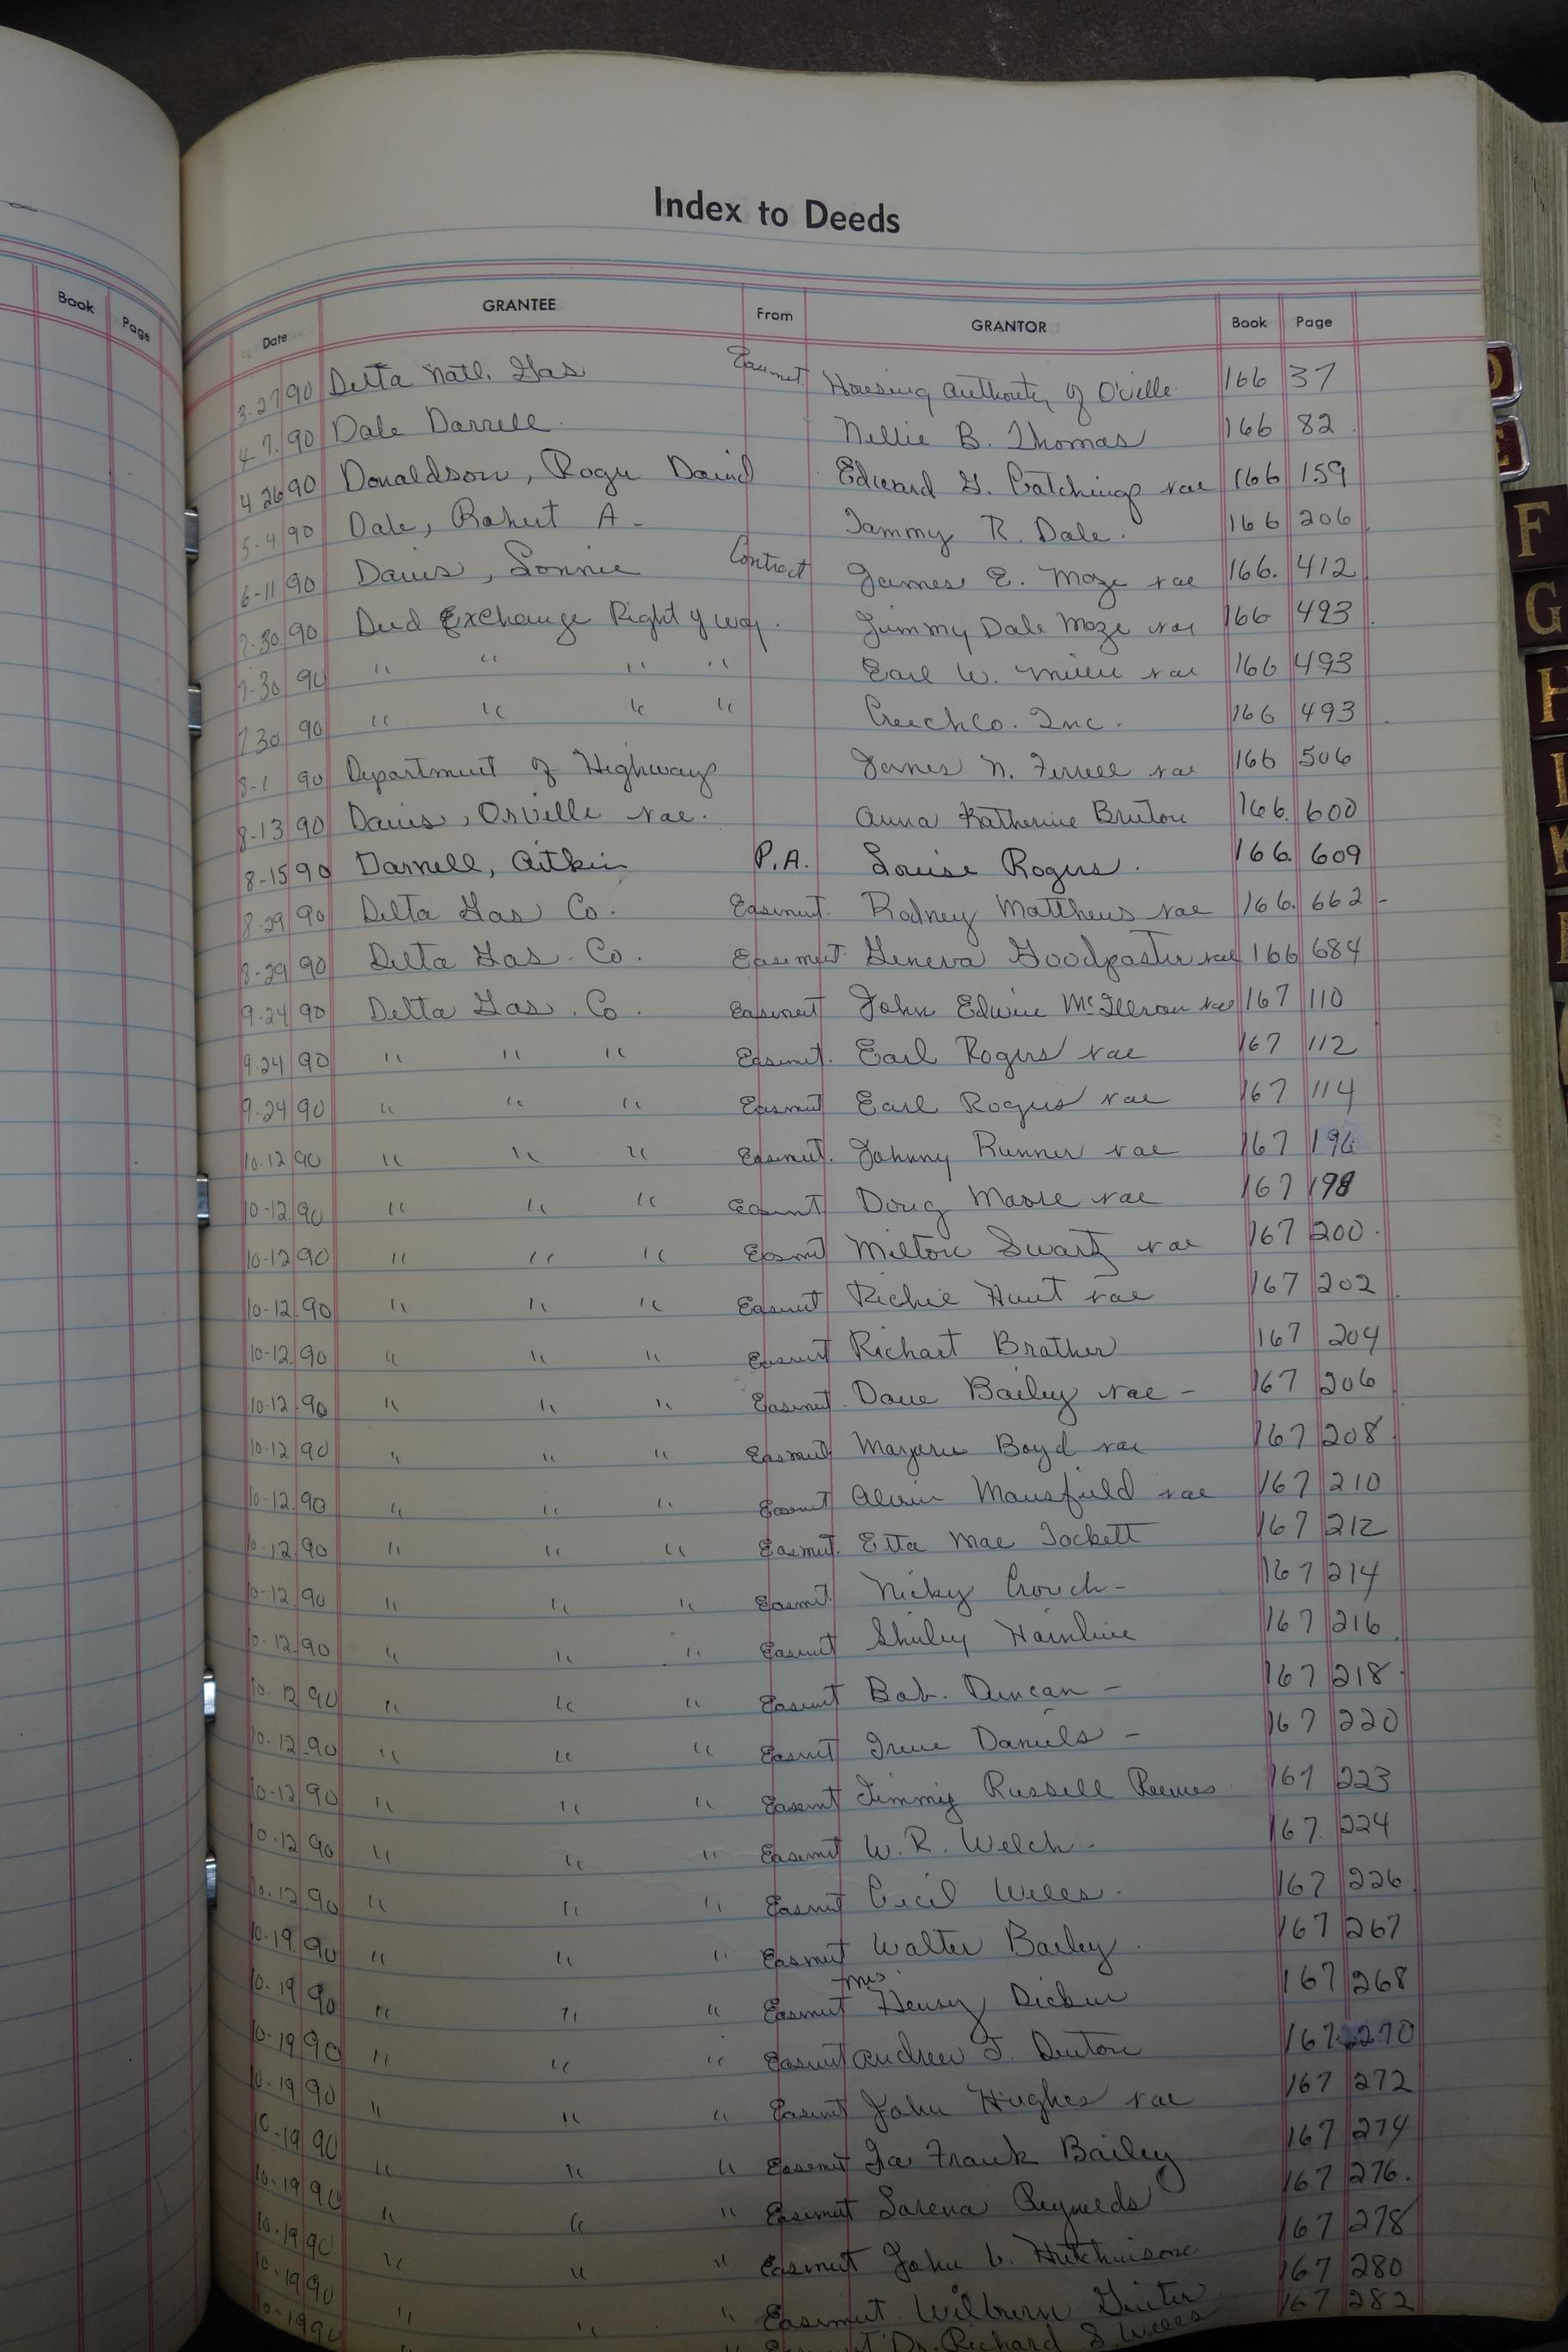 Index to Deeds
Book Page
Date GRANTEE From GRANTOR Book Page
3-27 90 Delta Natl. Gas Easmet Housing Authority of O'ville 166 37
4 7. 90 Dale Darrell Nellie B. Thomas 166 82
4 26 90 Donaldson, Roger David Edward G. Catchings &ac 166 159
5-4 90 Dale, Robert A. Tammy R. Dale. 166 206
6-11 90 Davis, Lonnie Contract James E. Moze &ac 166. 412
7.30 90 Deed Exchange Right of way. Jimmy Dale Moze &ac 166 493
7-30 90 " " " " Earl W. Miller &ac 166 493
7 30 90 " " " " Creech Co. Inc. 166 493
8-1 90 Department of Highways James N. Ferrell &ac 166 506
8-13 90 Davis, Orville &ac. Anna Katherine Bruton 166. 600
8-15 90 Darnell, Aitkin P.A. Louise Rogers. 166. 609
8-29 90 Delta Gas Co. Easmut. Rodney Matthews &ac 166. 662-
8-29 90 Delta Gas Co. Easemet. Geneva Goodpaster &ac 166 684
9-24 90 Delta Gas. Co. Easmet John Edwin &ac 167 110
9.24 90 " " " Easmt. Earl Rogers &ac 167 112
9-24 90 " " " Easmt Earl Rogers &ac 167 114
10.12 90 " " " Easmet. Johnny Runner &ac 167 196
10-12 90 " " " Easmt Doug Moore &ac 167 198
10-12 90 " " " Easmt Milton Swartz &ac 167 200
10-12.90 " " " Easmt Richie Hunt &ac 167 202
10-12.90 " " " Easmt Richart Brather 167 204
10-12.90 " " " Easmet. Dave Bailey &ac - 167 206
10-12 90 " " " Easmt Boyd &ac 167 208
10-12.90 " " " Easmt Alvin Mansfield &ac 167 210
10-12.90 " " " Easmt. Etta Mae Tockett 167 212
10-12.90 " " " Easmt. Nicky Crouch- 167 214
10-12.90 " " " Easmt Shirley Hainline 167 216
10-12 90 " " " Easmt Bob. Duncan - 167 218
10-12.90 " " " Easmt Irene Daniels - 167 220
10-12 90 " " " Easemt Jimmy Russell Reeves 167 223
10-12 90 " " " Easemt W. R. Welch - 167 224
10-12 90 " " " Easmt Cecil Wells. 167 226
10-19 90 " " " Easmt Walter Bailey. 167 267
Mrs.
10-19 90 " " " Easmt Henry 167 268
10-19 90 " " " Easmt Andrew J. Denton 167 270
10-19 90 " " " Easmt John Hughes &ac 167 272
10-19 90 " " " Easemt Frank Bailey 167 274
10-19 90 " " " Easemt Lorena Reynolds 167 276.
10-19 90 " " " Easmut John Hutchinson 167 278
10-19 90 " " " Easemut Wilburn Ginter 167 280
10-19 90 " " " Dr. Richard S. Wells 167 282
D
E
F
G
H
I
K